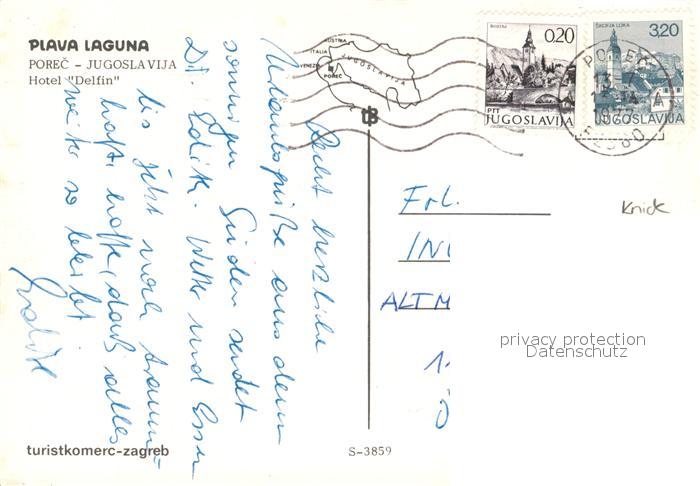 PLAVA LAGUNA
POREČ - JUGOSLAVIJA
Hotel "Delfin"
AUSTRIA
ITALIA
VENEZIA
POREČ
JUGOSLAVIJA
BLED
0.20
PTT
JUGOSLAVIJA
ŠKOFJA LOKA
3,20
JUGOSLAVIJA
POREČ
Recht herzliche
Urlaubsgrüße aus dem
sonnigen Süden sendet
Dir Edith. Wetter und Essen
bis jetzt noch traum-
haft, hoffe, daß alles
weiter so bleibt
Edith
Frl.
IN
ALTM
Knick
privacy protection
Datenschutz
turistkomerc-zagreb
S-3859